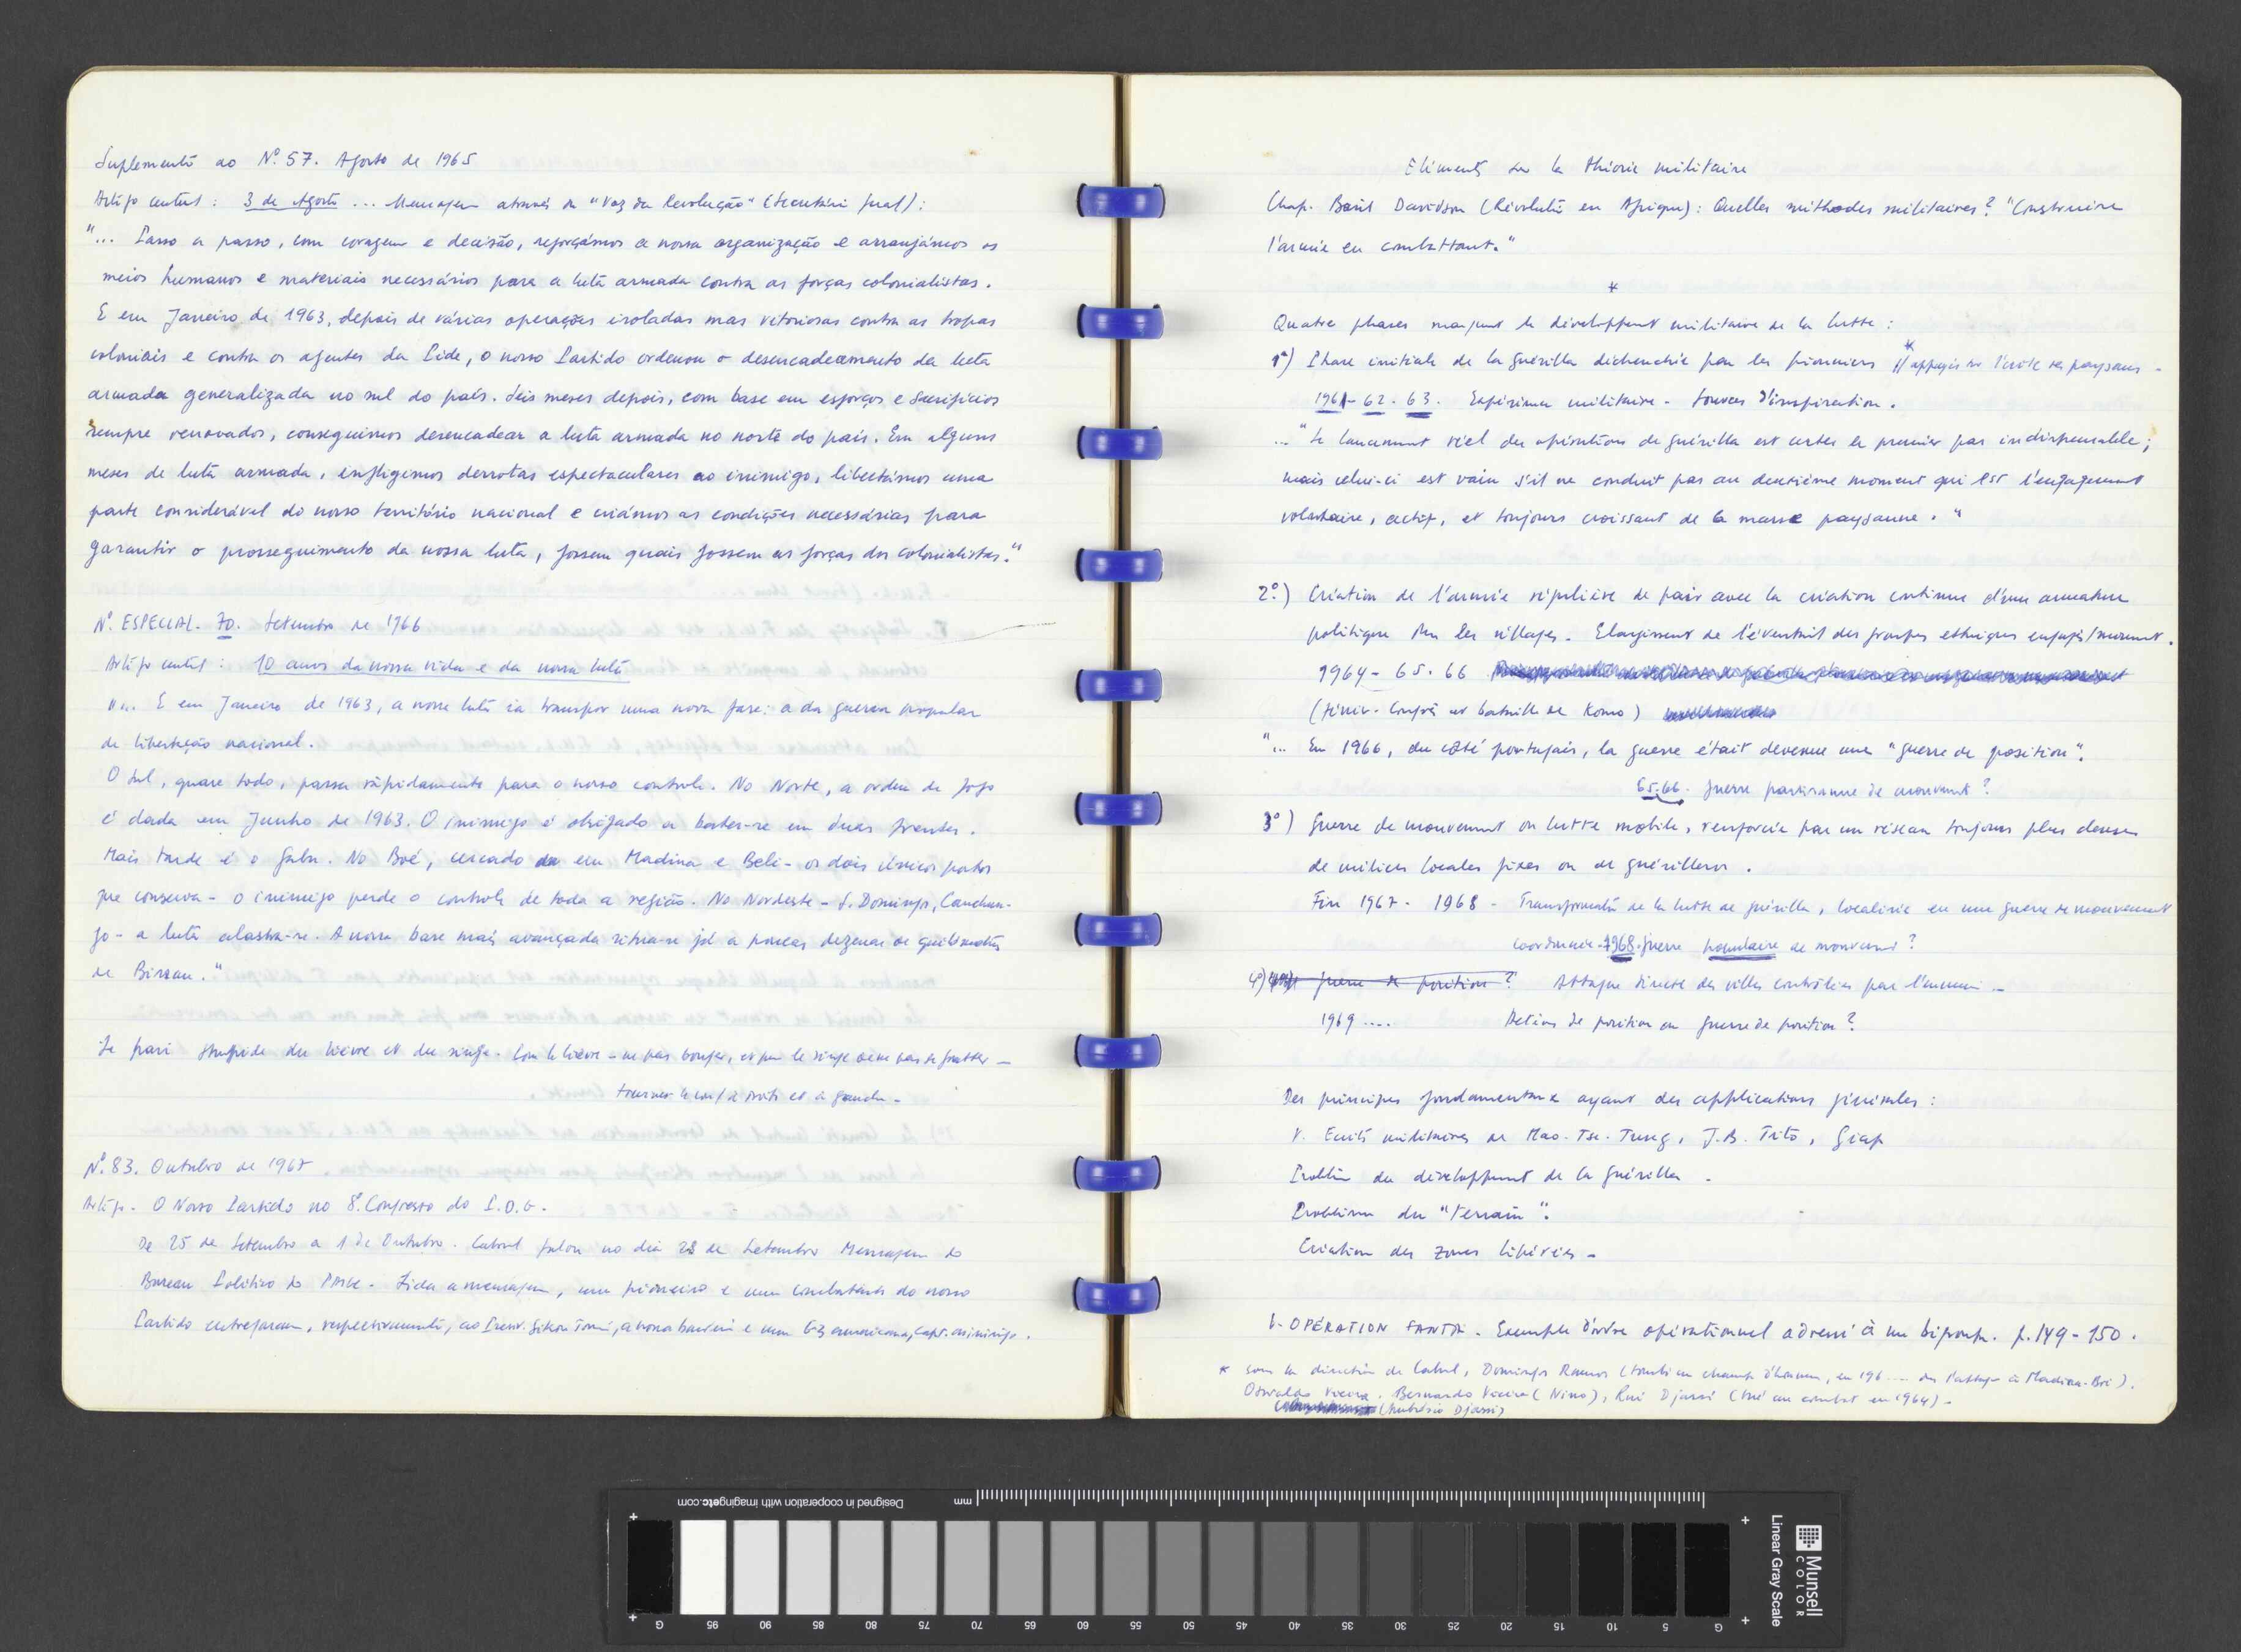 Suplemento ao Nº 57. Agosto de 1965
Artigo central : 3 de Agosto ... Mensagem através da "Voz da Revolução" (Secretário Geral) :
"... Passo a passo, com coragem e decisão, reforçámos a nossa organização e arranjámos os
meios humanos e materiais necessários para a luta armada contra as forças colonialistas.
E em Janeiro de 1963, depois de várias operações isoladas mas vitoriosas contra as tropas
coloniais e contra os agentes da Pide, o nosso Partido ordenou o desencadeamento da luta
armada generalizada no sul do país. Seis meses depois, com base em esforços e sacrifícios
sempre renovados, conseguimos desencadear a luta armada no norte do país. Em alguns
meses de luta armada, infligimos derrotas espectaculares ao inimigo, libertámos uma
parte considerável do nosso território nacional e criámos as condições necessárias para
garantir o prosseguimento da nossa luta, fossem quais fossem as forças dos colonialistas."
Nº. ESPECIAL. 70. Setembro de 1966
Artigo central : 10 anos da nossa vida e da nossa luta
"... E em Janeiro de 1963, a nossa luta ia transpor uma nova fase: a da guerra popular
de libertação nacional.
O Sul, quase todo, passa rápidamente para o nosso controle. No Norte, a ordem de fogo
é dada em Junho de 1963. O inimigo é obrigado a bater-se em duas frentes.
Mais tarde é o Gabu. No Boé, cercado em Madina e Beli - os dois únicos pontos
que conserva - o inimigo perde o controle de toda a região. No Nordeste - S. Domingos, Canchun-
go - a luta alastra-se. A nossa base mais avançada situa-se já a poucas dezenas de quilómetros
de Bissau."
Le pari stupide du lièvre et du singe. Pour le lièvre - ne pas bouger, et pour le singe ne pas se gratter -
tourner le cou à droite et à gauche -
Nº. 83. Outubro de 1967
Artigo - O Nosso Partido no 8º. Congresso do P.D.G.
De 25 de Setembro a 1 de Outubro. Cabral falou no dia 28 de Setembro Mensagem do
Bureau Politico do PAIGC - Lida a mensagem, um pioneiro e um combatente do nosso
Partido entregaram, respectivamente, ao Presid. Sékou Touré, a nossa bandeira e um G-3 americana, capt. ao inimigo.
Eléments sur la théorie militaire
Chap. Basil Davidson (Révolution en Afrique) : Quelles méthodes militaires ? "Construire
l'armée en combattant."
*
Quatre phases marquent le développement militaire de la lutte :
1º) Phase initiale de la guérilla déclenchée par les pionniers * // appuyés sur l'unité des paysans -
1961 - 62 - 63. Expérience militaire - Sources d'inspiration.
... "Le lancement réel des opérations de guérilla est certes le premier pas indispensable ;
mais celui-ci est vain s'il ne conduit pas au deuxième moment qui est l'engagement
volontaire, actif, et toujours croissant de la masse paysanne."
2º.) Création de l'armée régulière de pair avec la création continue d'une armature
politique dans les villages. Elargissement de l'éventail des groupes ethniques engagés/mouvmt.
1964 - 65 - 66
(Févier - Congrès et bataille de Komo)
"... En 1966, du côté portugais, la guerre était devenue une "guerre de position".
65.66. guerre partisanne de mouvement ?
3º) Guerre de mouvement ou lutte mobile, renforcée par un réseau toujours plus dense
de milices locales fixes ou de guérilleros.
Fin 1967 - 1968 - Transformation de la lutte de guérilla, localisée en une guerre de mouvement
coordonnée - 1968 - guerre populaire de mouvement ?
4º) guerre de position ? Attaque directe des villes contrôlées par l'ennemi -
1969 .... Actions de position ou guerre de position ?
Des principes fondamentaux ayant des applications générales :
V. Ecrits militaires de Mao-Tse-Tung, J.B. Tito, Giap
Problème du développement de la guérilla -
Problème du "terrain".
Création des zones libérées -
V. OPÉRATION FANTA - Exemple d'ordre opérationnel adressé à un bigroupe. p. 149 - 150.
* sous la direction de Cabral, Domingos Ramos (tombé au champ d'honneur, en 196 .... dans l'attaque à Madina-Boé),
Osvaldo Vieira, Bernardo Vieira (Nino), Rui Djassi (tué au combat en 1964) -
(Ambrósio Djassi)
Designed in cooperation with imagingetc.com
mm
G 95 90 85 80 75 70 65 60 55 50 45 40 35 30 25 20 15 10 5 G
Munsell COLOR
Linear Gray Scale